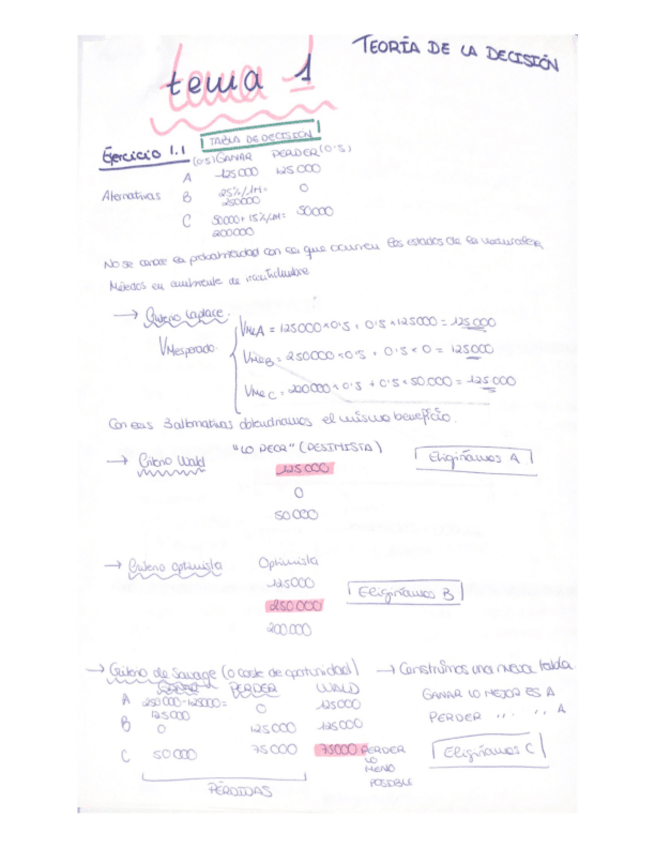 TEORÍA DE LA DECISIÓN
tema 1
Ejercicio 1.1 TABLA DE DECISIÓN
(0'5) GANAR PERDER (0'5)
A 125000 125000
Alternativas B 25%/1M= 0
250000
C 50000+15%/1M= 50000
200000
No se conoce la probabilidad con la que ocurren los estados de la naturaleza
Métodos en ambiente de incertidumbre
→ Criterio Laplace.
VMesperado.
VMeA = 125000×0'5 + 0'5×125000 = 125000
VMeB = 250000×0'5 + 0'5×0 = 125000
VMeC = 200000×0'5 + 0'5×50.000 = 125000
Con las 3 alternativas obtendríamos el mismo beneficio.
→ Criterio Wald "LO PEOR" (PESIMISTA) Eligiríamos A
125000
0
50000
→ Criterio optimista Optimista
125000
250000 Eligiríamos B
200000
→ Criterio de Savage (o coste de oportunidad) → Construimos una nueva tabla
PERDER WALD
A 250000-125000= 0 125000 GANAR LO MEJOR ES A
125000
B 0 125000 125000 PERDER " " A
C 50000 75000 75000 PERDER LO MENO POSIBLE Eligiríamos C
PÉRDIDAS